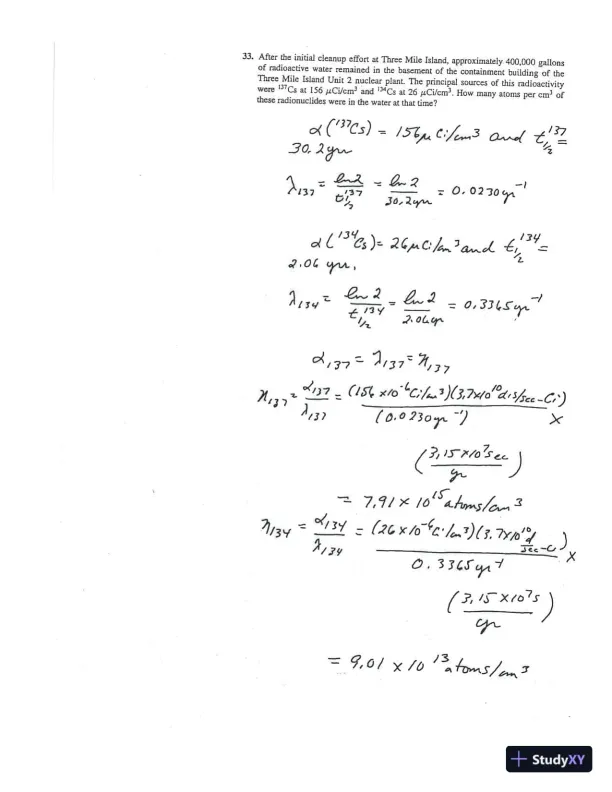 33. After the initial cleanup effort at Three Mile Island, approximately 400,000 gallons
of radioactive water remained in the basement of the containment building of the
Three Mile Island Unit 2 nuclear plant. The principal sources of this radioactivity
were ¹³⁷Cs at 156 μCi/cm³ and ¹³⁴Cs at 26 μCi/cm³. How many atoms per cm³ of
these radionuclides were in the water at that time?
α(¹³⁷Cs) = 156μ Ci/cm³ and t₁/₂¹³⁷ =
30.2yr
λ₁₃₇ = ln2/t₁/₂¹³⁷ = ln 2/30.2yr = 0.0230 yr⁻¹
α(¹³⁴Cs) = 26μCi/cm³ and t₁/₂¹³⁴ =
2.06 yr.
λ₁₃₄ = ln 2/t₁/₂¹³⁴ = ln 2/2.06yr = 0.3365 yr⁻¹
α₁₃₇ = λ₁₃₇ = n₁₃₇
n₁₃₇ = α₁₃₇/λ₁₃₇ = (156 x10⁻⁶Ci/cm³)(3.7x10¹⁰dis/sec-Ci)/(0.0230yr⁻¹) X
(3.15 x10⁷sec/yr)
= 7.91 x 10¹⁵ atoms/cm³
n₁₃₄ = α₁₃₄/λ₁₃₄ = (26 x10⁻⁶Ci/cm³)(3.7x10¹⁰ d/sec-C)/0.3365yr⁻¹ X
(3.15 x10⁷s/yr)
= 9.01 x 10¹³ atoms/cm³
StudyXY